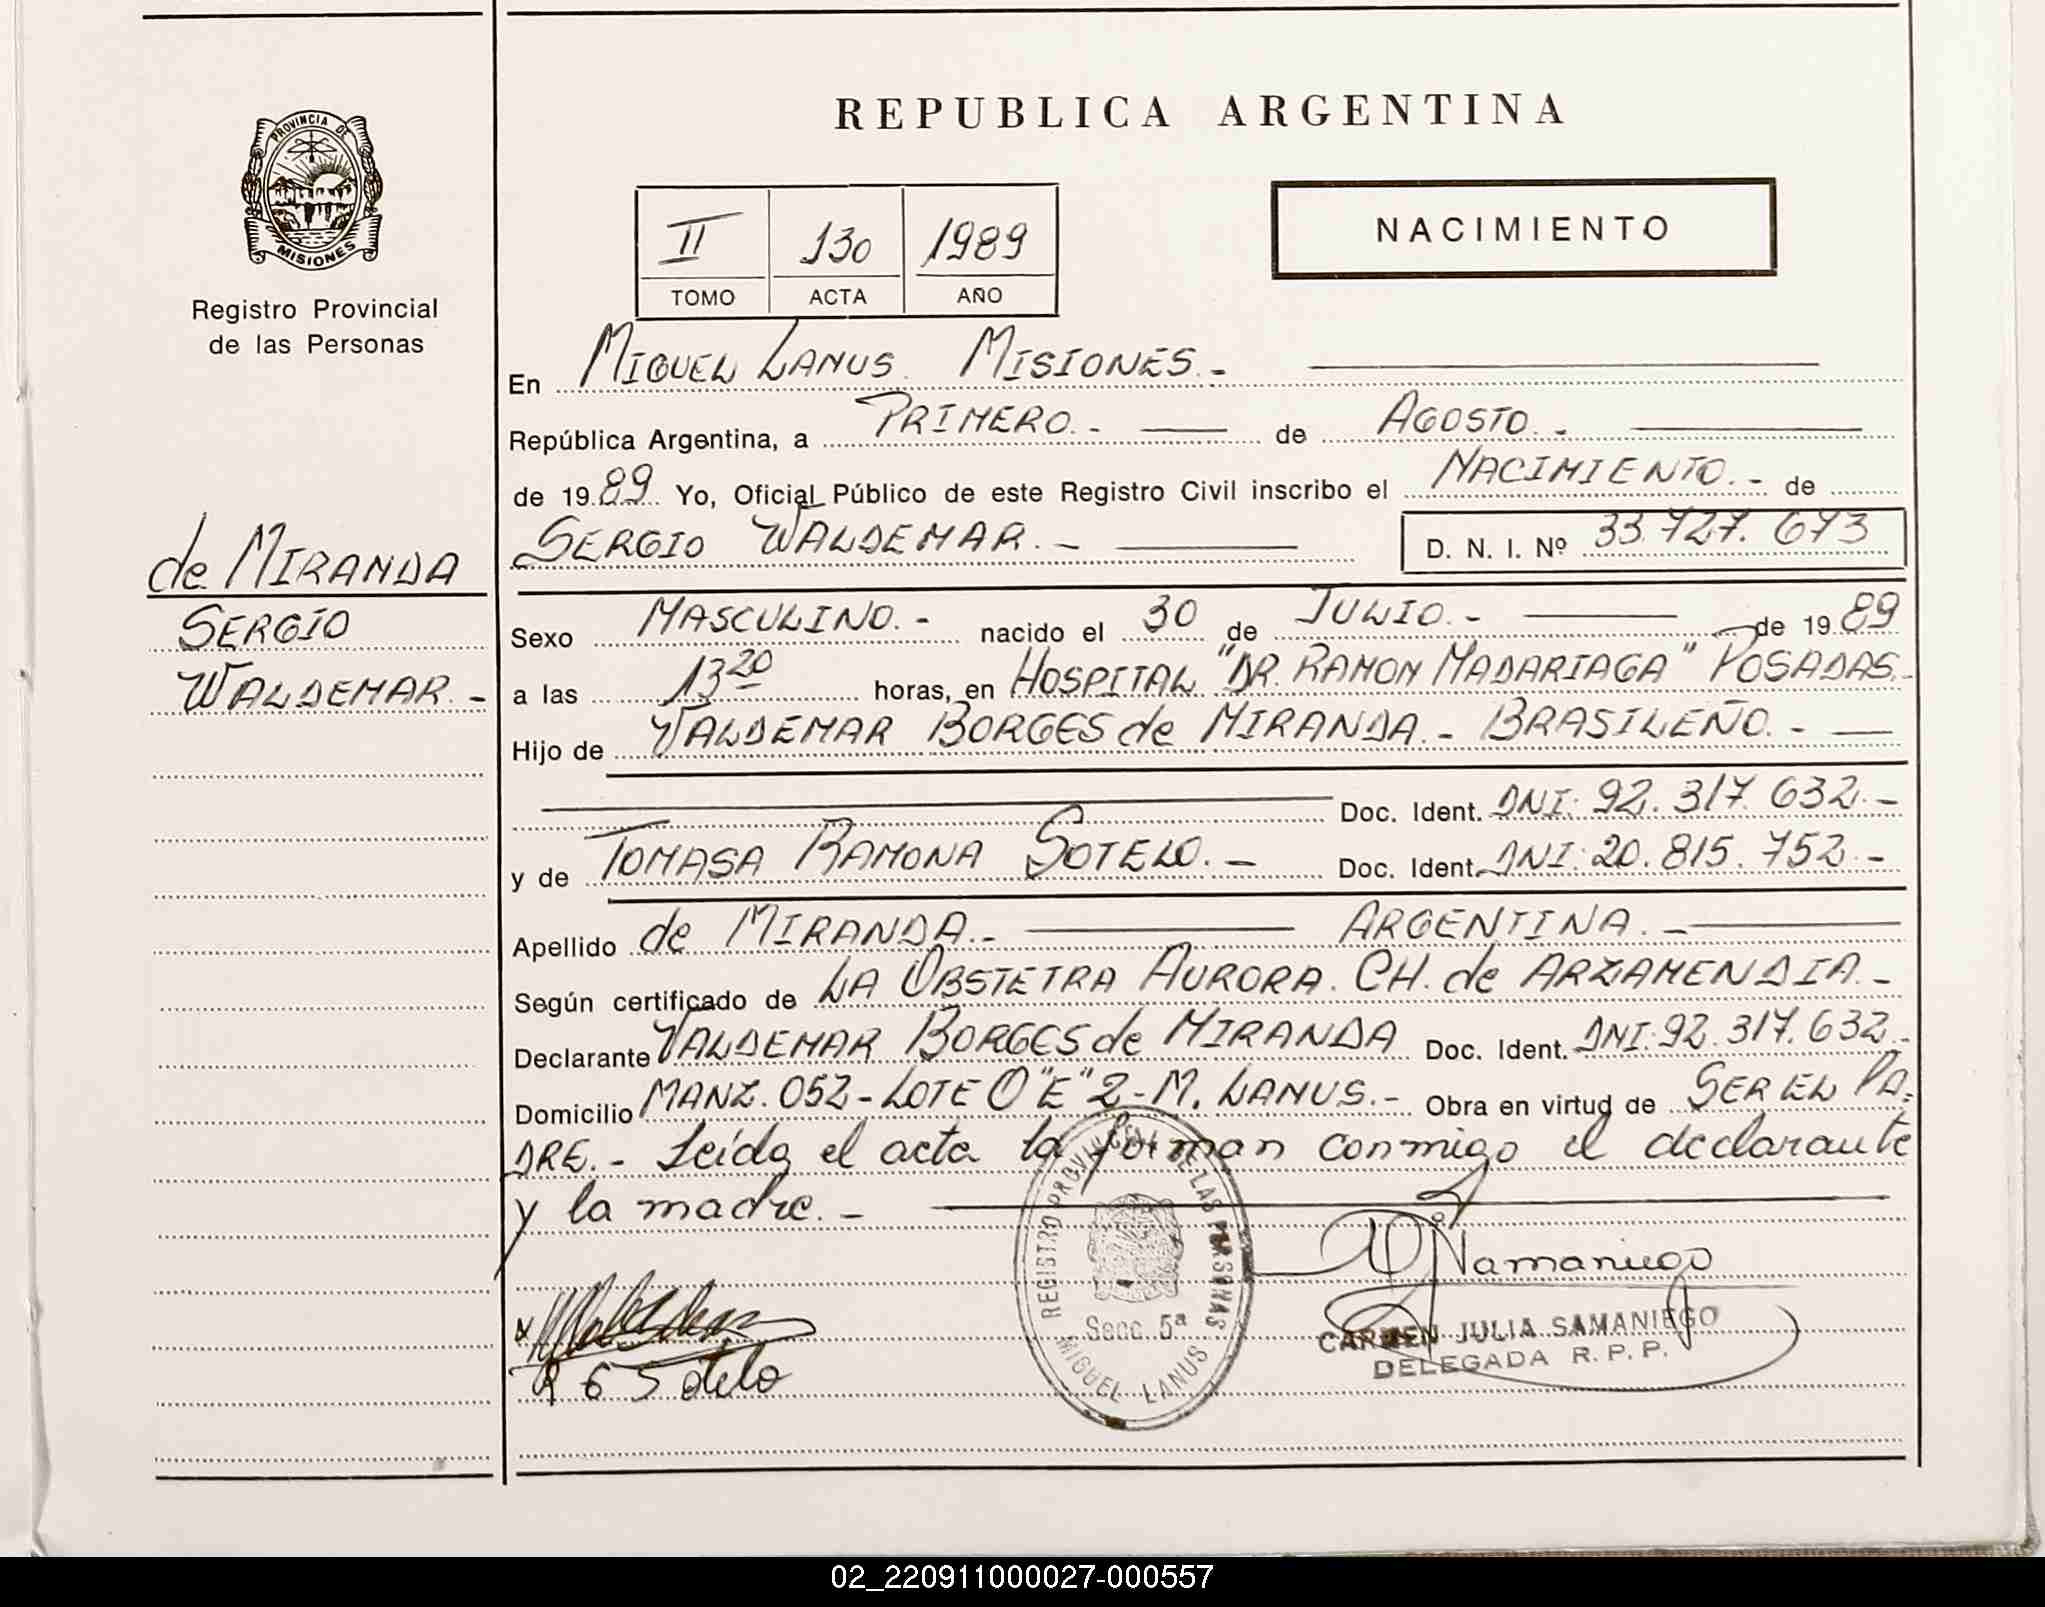 REPUBLICA ARGENTINA
PROVINCIA DE
MISIONES
Registro Provincial
de las Personas
II 130 1989
TOMO ACTA AÑO
NACIMIENTO
En MIGUEL LANUS. MISIONES.-
República Argentina, a PRIMERO.- de AGOSTO.-
de 1989 Yo, Oficial Público de este Registro Civil inscribo el NACIMIENTO.- de
SERGIO WALDEMAR.- D. N. I. Nº 33.727.673
de MIRANDA
SERGIO
WALDEMAR.-
Sexo MASCULINO.- nacido el 30 de JULIO.- de 1989
a las 13 20 horas, en HOSPITAL "DR. RAMON MADARIAGA" POSADAS.-
Hijo de VALDEMAR BORGES de MIRANDA.- BRASILEÑO.-
Doc. Ident. DNI: 92.317.632.-
y de TOMASA RAMONA SOTELO.- Doc. Ident. DNI: 20.815.752.-
Apellido de MIRANDA.- ARGENTINA.-
Según certificado de LA OBSTETRA AURORA. CH. de ARZAMENDIA.-
Declarante VALDEMAR BORGES de MIRANDA Doc. Ident. DNI: 92.317.632.-
Domicilio MANZ. 052-LOTE O "E" 2-M. LANUS.- Obra en virtud de SER EL PA-
DRE.- Leída el acta la firman conmigo el declarante
y la madre.-
REGISTRO PROVINCIAL DE LAS PERSONAS
Secc. 5ª
MIGUEL LANUS
Samaniego
CARMEN JULIA SAMANIEGO
DELEGADA R. P. P.
Sotelo
02_220911000027-000557